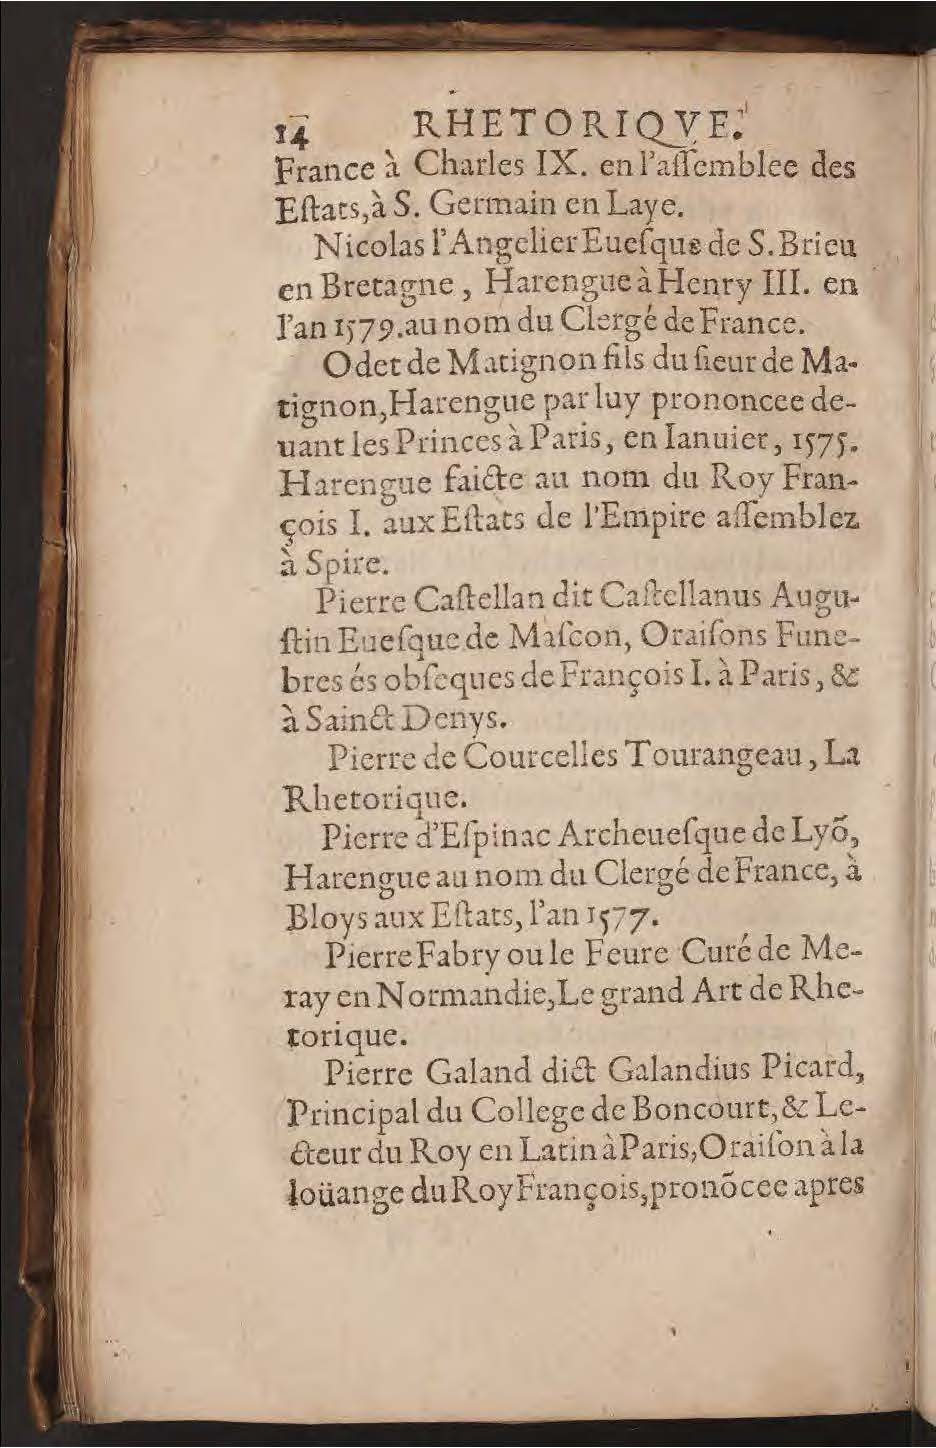 14 RHETORIQVE.
France à Charles IX. en l'aſſemblee des
Eſtats, à S. Germain en Laye.
Nicolas l'Angelier Eueſque de S. Brieu
en Bretagne, Harengue à Henry III. en
l'an 1579. au nom du Clergé de France.
Odet de Matignon fils du ſieur de Ma-
tignon, Harengue par luy prononcee de-
uant les Princes à Paris, en Ianuier, 1575.
Harengue faicte au nom du Roy Fran-
çois I. aux Eſtats de l'Empire aſſemblez
à Spire.
Pierre Caſtellan dit Caſtellanus Augu-
ſtin Eueſque de Maſcon, Oraiſons Fune-
bres és obſeques de François I. à Paris, &
à Sainct Denys.
Pierre de Courcelles Tourangeau, La
Rhetorique.
Pierre d'Eſpinac Archeueſque de Lyõ,
Harengue au nom du Clergé de France, à
Bloys aux Eſtats, l'an 1577.
Pierre Fabry ou le Feure Curé de Me-
ray en Normandie, Le grand Art de Rhe-
torique.
Pierre Galand dict Galandius Picard,
Principal du College de Boncourt, & Le-
cteur du Roy en Latin à Paris, Oraiſon à la
loüange du Roy François, pronõcee apres